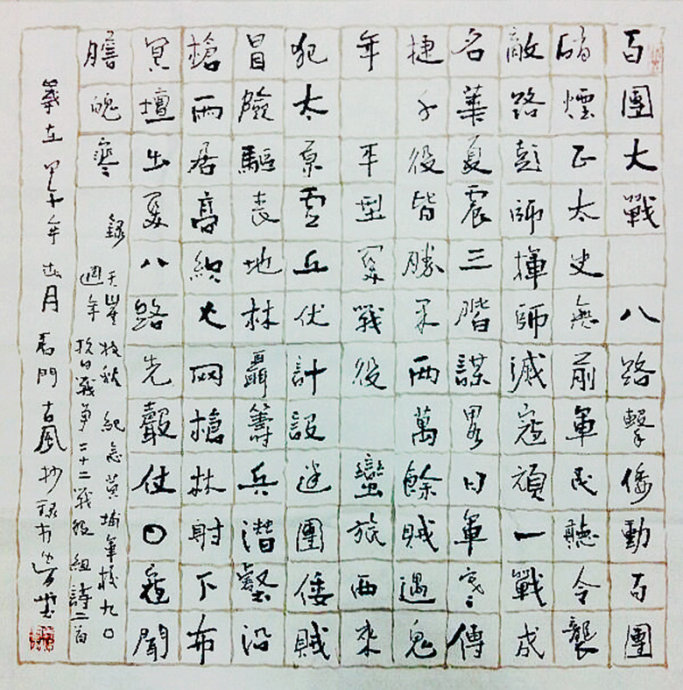 百團大戰 八路擊倭動百團
硝煙正太史無前軍民聽令襲
敵路彭帥揮師滅寇頑一戰成
名華夏震三階謀略日軍寒傳
捷千役皆勝果兩萬餘賊遇鬼
年 平型關戰役 蠻旅西來
犯太原雲丘伏計設迷團倭賊
冒險驅喪地林聶籌兵潛壑沿
槍雨居高織火网槍林射下布
冥壇出關八路先聲仗日寇聞
膽魄寒
錄 天崖 秋 紀念黃埔軍校九〇
週年 抗日戰爭二十二戰役組詩二首
歲在甲午年 月 門古風抄錄於